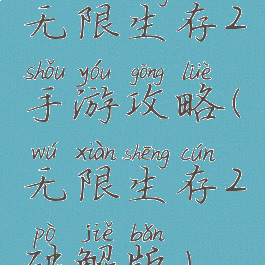 无限生存2
shǒu yóu gōng lüè
手游攻略(
wú xiàn shēng cún
无限生存2
pò jiě bǎn
破解版)